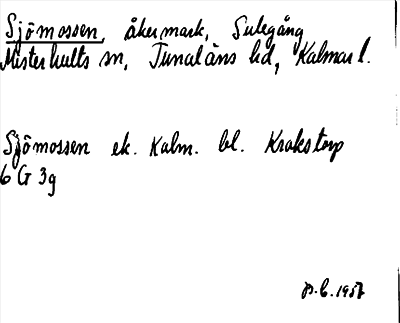 Sjömossen, åkermark, Sulegång
Misterhults sn, Tunaläns hd, Kalmar l.
Sjömossen ek. Kalm. bl. Krokstorp
6 G 3g
1957